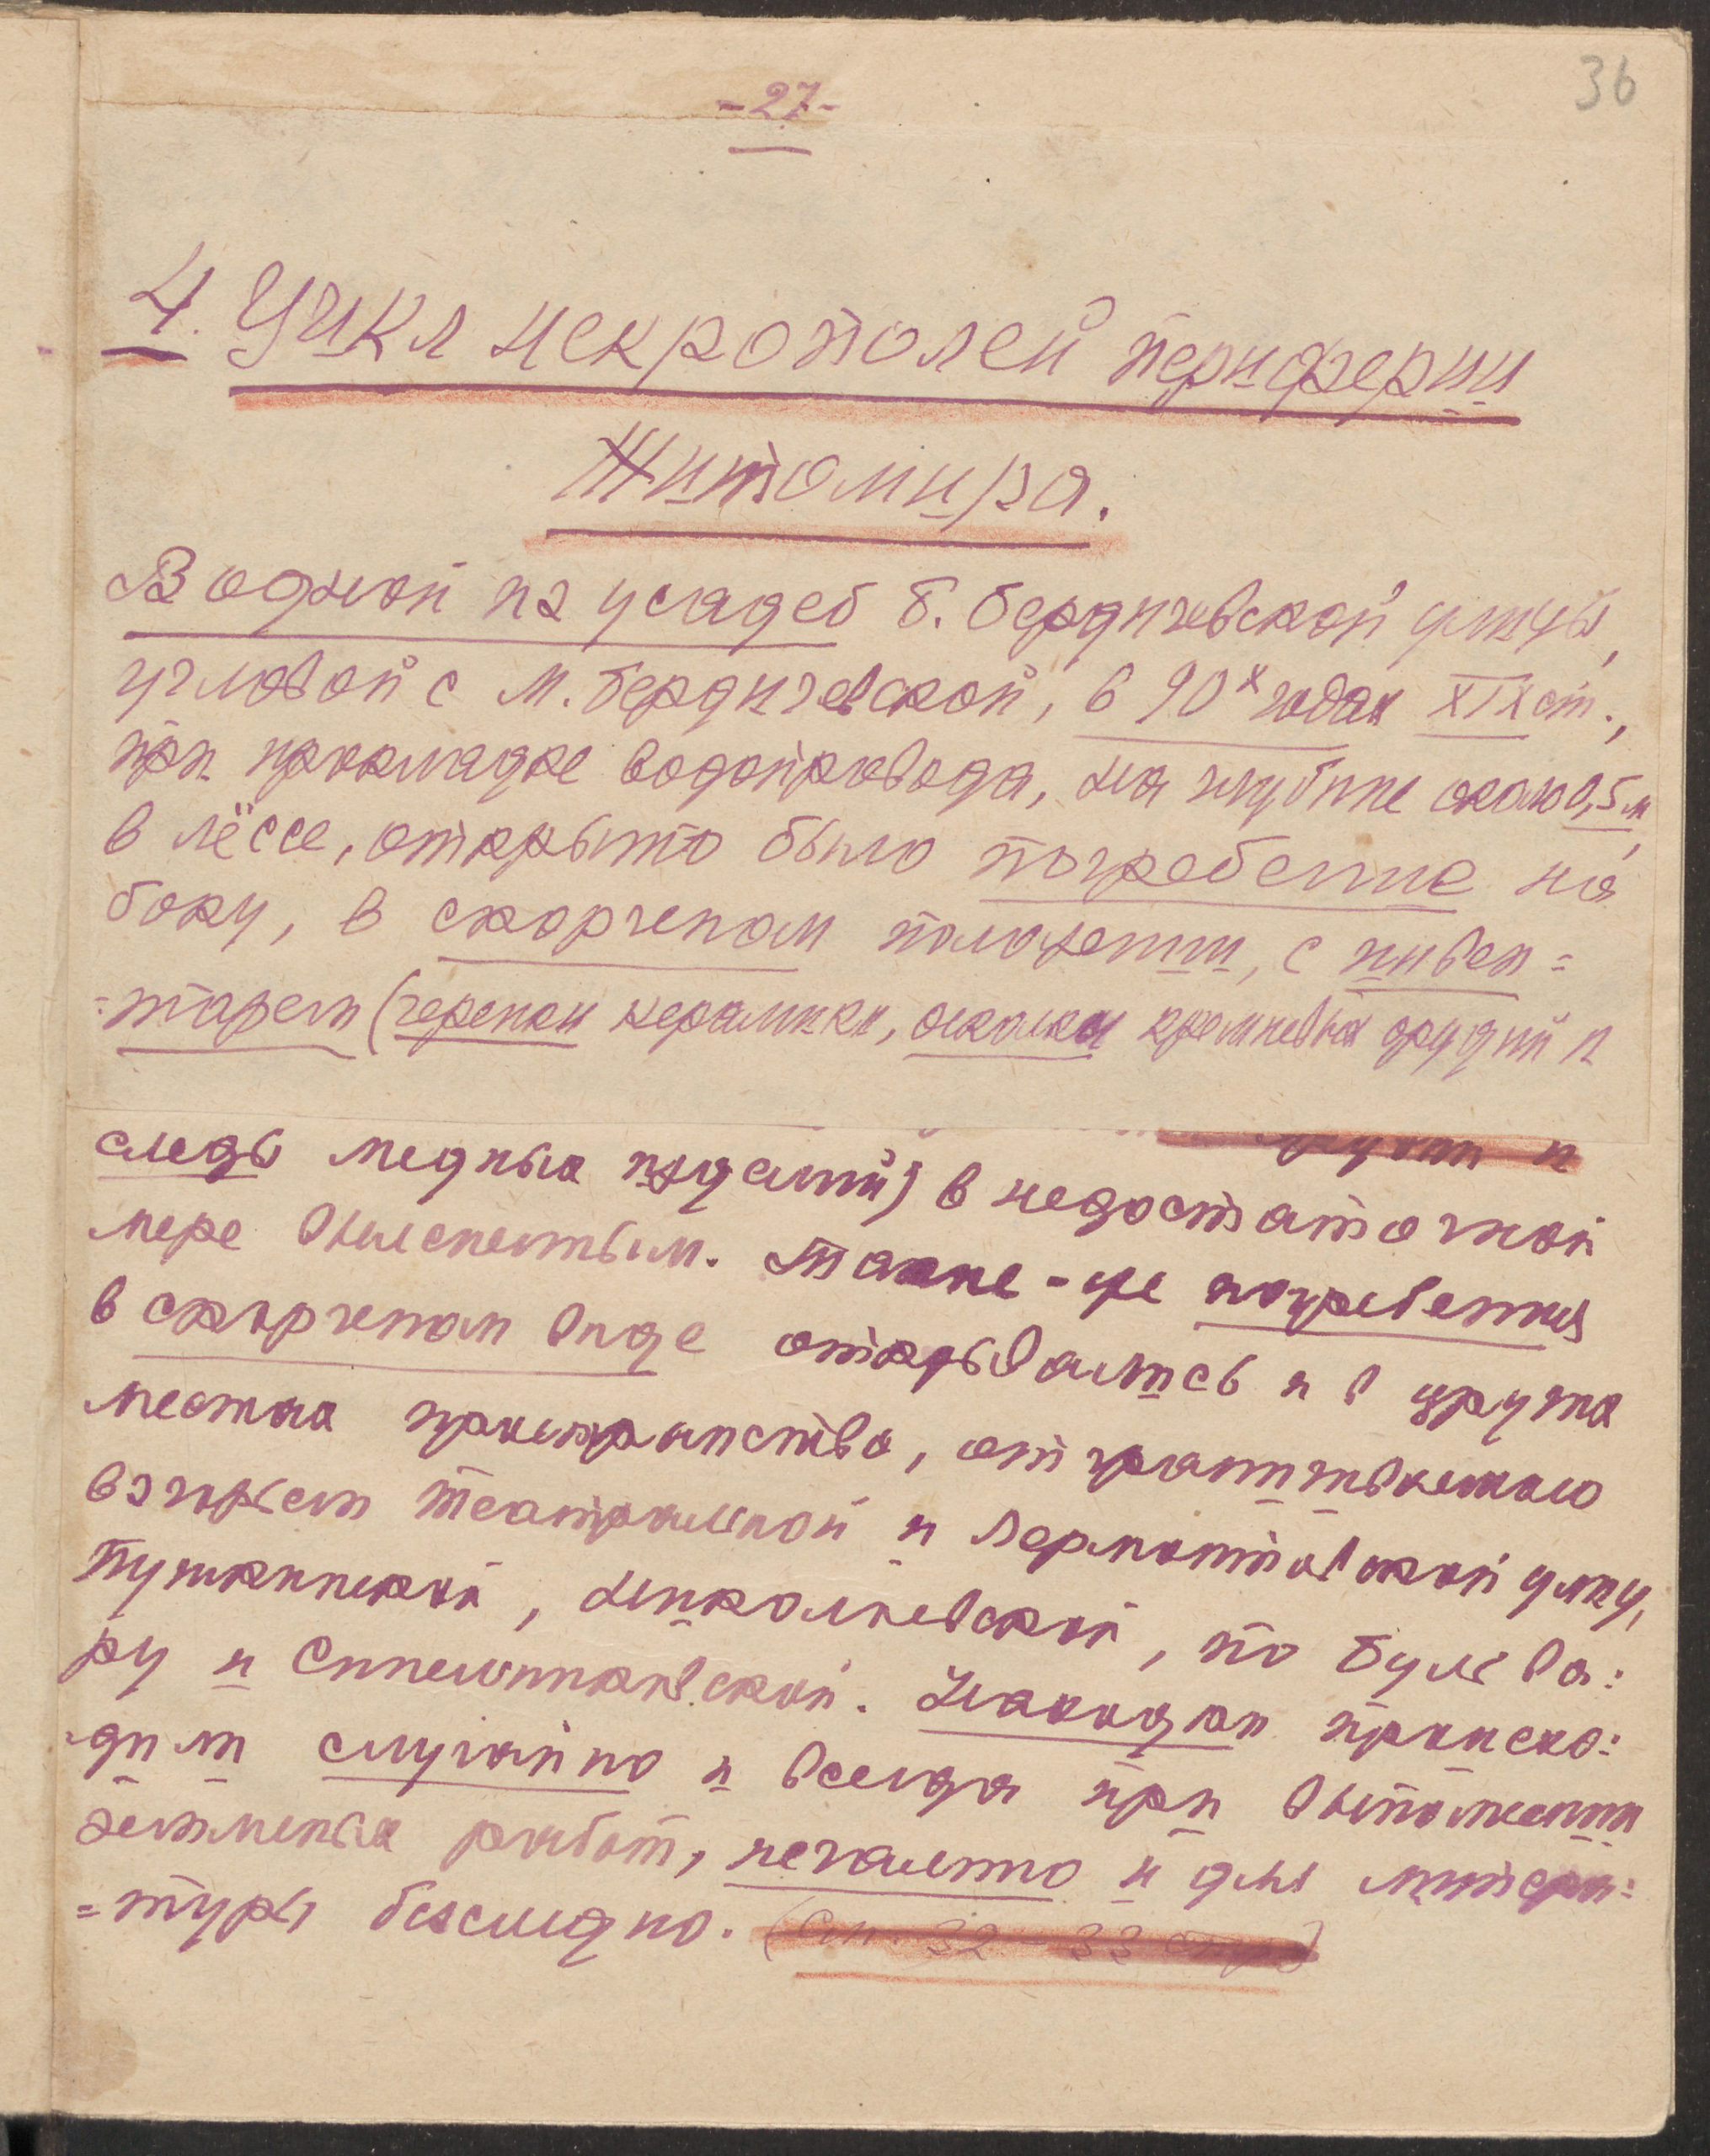 36
-27-
4. Цикл некрополей периферии
Житомира.
В одной из усадеб Б. Бердичевской улицы,
угловой с М. Бердичевской, в 90х годах XIX ст.,
при прокладке водопровода, на глубине около 0,5 м,
в лёссе, открыто было погребение на
боку, в скорченом положении, с инвен=
=тарем (черепки керамики, осколки кремневых орудий и
следы медных изделий) в недостаточной
мере выясненным. Такие-же погребения
в скорченом виде открывались и в других
местах пространства, отграничиваемого
взгорьем Театральной и Лермонтовской улиц,
Пушкинской, Николаевской, по бульва:
ру и Синельниковской. Находки происхо:
дили случайно и всегда при выполнении
земляных работ, нечаянно и для литера:
=туры бесследно. (См. 32-33 стр.)